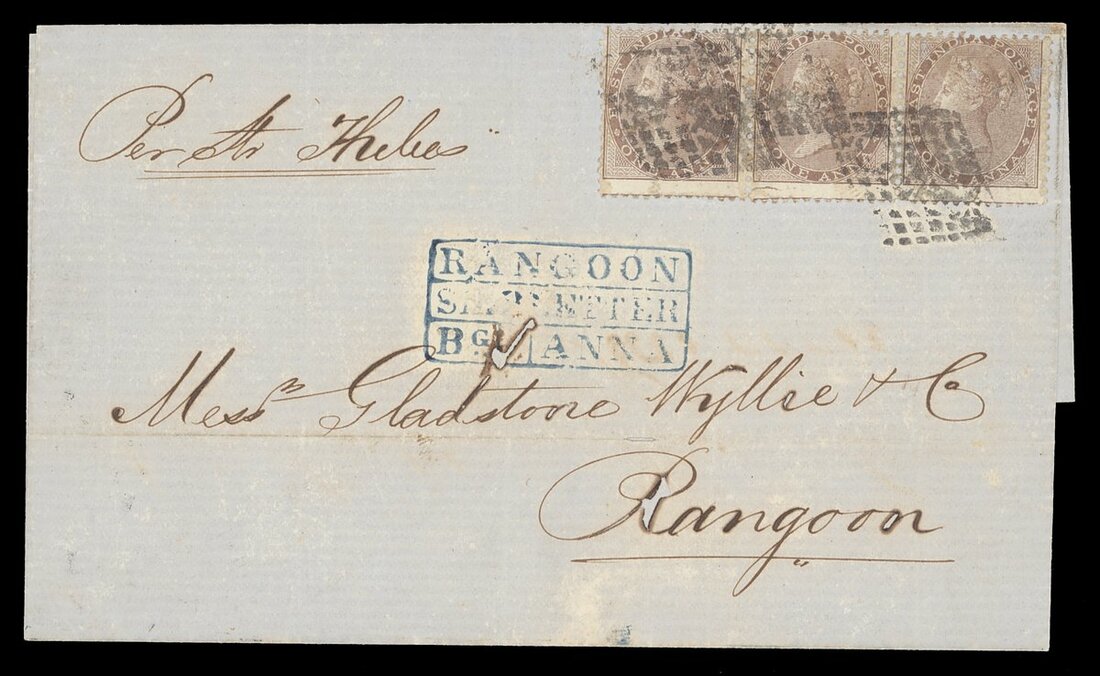 Per Str Thebes
EAST INDIA POSTAGE
ONE ANNA
EAST INDIA POSTAGE
ONE ANNA
EAST INDIA POSTAGE
ONE ANNA
RANGOON
SHIP LETTER
BG ANNA
Messrs Gladstone Wyllie & Co
Rangoon